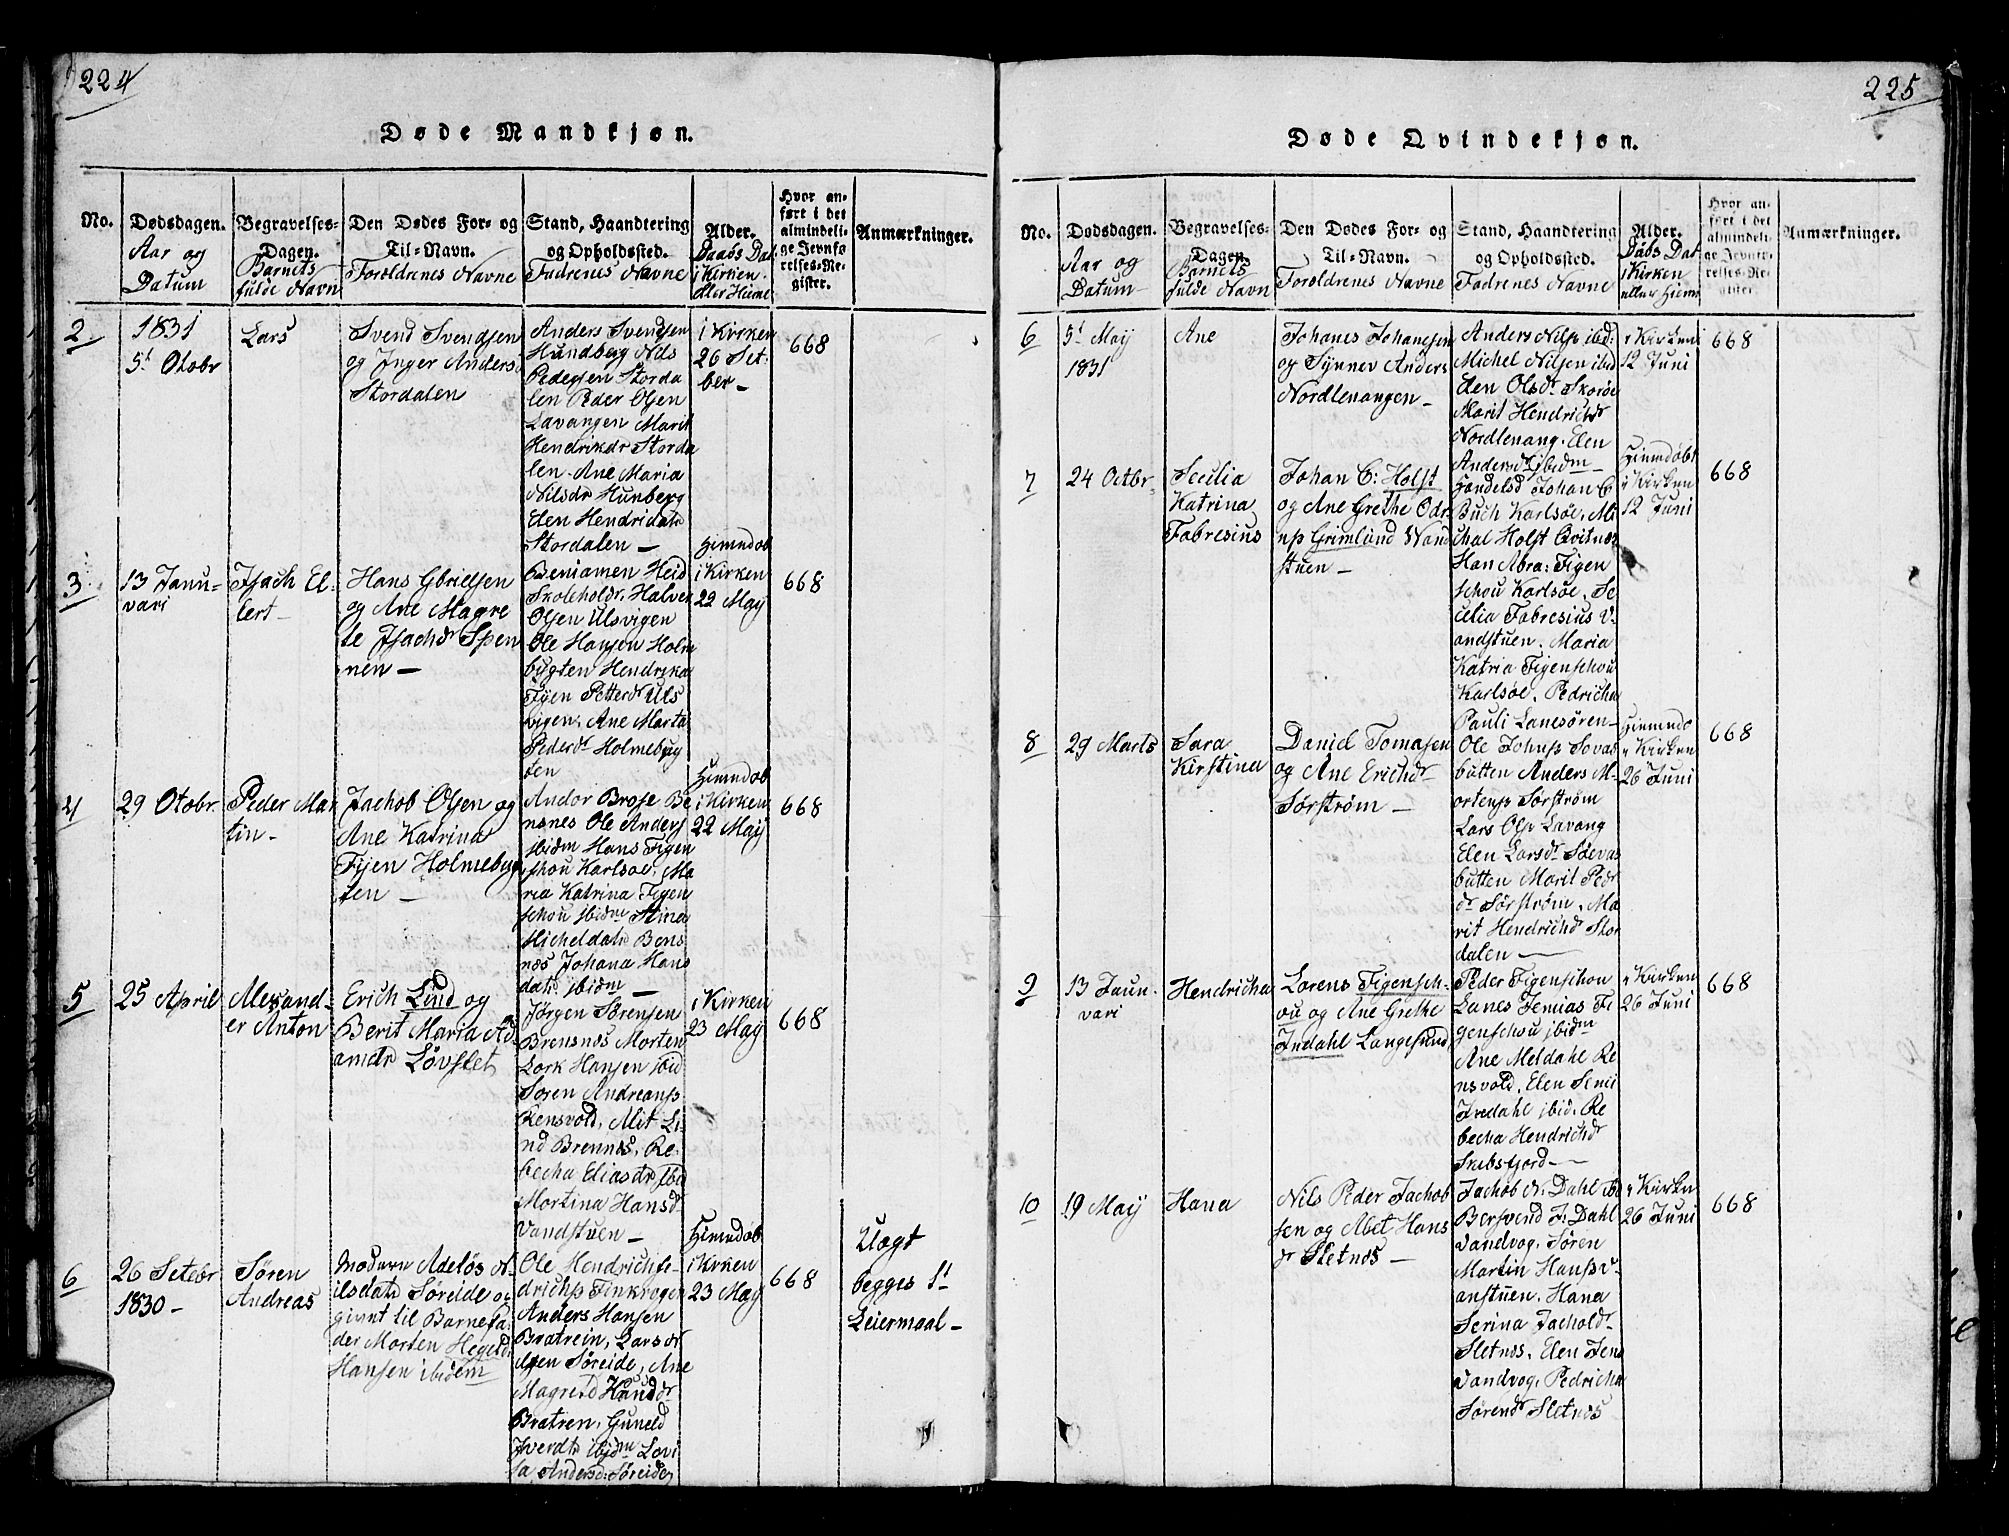 224
Døde Mandkjøn.
No.
Dødsdagen.
Aar og
Datum
Begravelses-
Dagen.
Barnets
fulde Navn
Den Dødes For- og
Til-Navn.
Foroldrenes Navne
Stand, Haandtering
og Opholdssted.
Fadrenes Navne
Alder.
Daabs Dat
i Kirken
eller Hiem
Hvor an-
ført i det
almindeli-
ge Jevnfø-
relses-Re-
gister.
Anmærkninger.
2
1831
5t Otobr
Lars
Svend Svendsen
og Inger Anders
Stordalen
Anders Svendsen
Hundberg Nils
Pedersen Storda
len Peder Olsen
Lavangen Marit
Hendriksdr Storda
len. Ane Maria
Nilsdr Hunberg
Elen Hendridatr
Stordalen —
i Kirken
26 Set-
ber —
668
3
13 Janu-
vari
Isach El-
lert —
Hans Gbrielsen
og Ane Magre
te Isachdr Spen
nen —
Beniamen Heid
Skoleholdr. Halver
Olsen Ulsvigen
Ole Hansen Holm
bugten Hendrika
Fijen Petterdr Uls
vigen. Ane Marta
Pederdr Holmebug
ten
Hiemdøb
i Kirken
22 May
668
4
29 Otobr.
Peder Mar
tin —
Jachob Olsen og
Ane Katrina
Fijen Holmebug
ten —
Andor Brose Be
nsnes Ole Anders
ibidm Hans Figen
schou Karlsøe. Ma
ria Katrina Figen
schou ibidm Stina
Micheldatr Bens
næs Johana Hans
datr ibidm —
Hiemdøb
i Kirken
22 May
668
5
25 April
Alexand-
er Anton
Erich Lind og
Berit Maria Ad
amdr Løvslet
Jørgen Sørensen
Brensnæs Morten
Lork Hansen ibid
Søren Andreass
Rensvold. Alit Li-
nd Brennes. Re-
becha Eliasdr ibid
Martina Hansdr
Vandstuen —
i Kirken
23 May
668
6
26 Setebr
1830 —
Søren
Andreas
Moderen Adeløs N-
ilsdatr Sørelde og
givnt til Barnefa-
der Morten Hegeldr
Hansen ibidem
Ole Hendrichse-
drichs Finkrogen
Anders Hansen
Bratrein, Lars N-
ilsen Søreide, Ane
Magretd Handdr
Bratren, Guneld
Iverdtr ibidm Lovi
sa Andersd: Søreide
Hiemdøb
i Kirken
23 May
668
Uægt
begges 1t
Leiermaal —
225
Døde Qvindekjøn.
No.
Dødsdagen.
Aar og
Datum —
Begravelses-
Dagen.
Barnets
fulde Navn
Den Dødes For- og
Til-Navn.
Foroldrenes Navne
Stand, Haandtering
og Opholdssted.
Fadrenes Navne
Alder.
Dåbs Dat
i Kirken
eller Hiem
Hvor an-
ført i det
almindeli-
ge Jevnfø-
relses-Re-
gister.
Anmærkninger.
6
5t May
1831
Ane
Johanes Johanesen
og Synnev Anders
Nordlenangen —
Anders Nilss ibd:
Michel Nilsen ibid
Elen Olsdr Skorøe
Marit Hendrichdr
Nordlenang. Elen
Andersdr ibidm —
i Kirken
12 Juni
668
7
24 Octbr.
Secilia
Katrina
Fabresius
Johan C: Holst
og Ane Grethe Odr
up Grimlund Vand
stuen —
Handelsd Johan C
Buch Karlsøe. Mi
chal Holst Qvitnæs
Han Abra: Figen
schou Karlsøe. Se
cilia Fabresius V-
andstuen. Maria
Katria Figenschou
Karlsøe. Pedricha
Pauli Lanesøren —
Hiemdøbt
i Kirken
12 Juni
668
8
29 Marts
Sara
Kirstina
Daniel Tomasen
og Ane Erichdr
Sørstrøm —
Ole Johnss Sovas
botten Anders M-
ortenss Sørstrøm
Lars Olss Lavang
Elen Larsdr Søevas
butten Marit Pedr
dr Sørstrøm. Ma
rit Hendrichdr Stor
dalen —
Hiemdø
i Kirken
26 Juni
668
9
13 Jaun.
vari
Hendricha
Lorens Figensch-
ou og Ane Grethe
Indahl Langesund
Peder Figenschou
Lanes Jemias Fi
genschou ibidm
Ane Meldahl Re
nsvold. Elen Seni
Indahl ibid. Re
becha Hendrichdr
Skibsfjord —
i Kirken
26 Juni
668
10
19 May
Hana
Nils Peder Jachob
sen og Abet Hans
dr Sletnæs —
Jachob N. Dahl ibd
Bersvend J: Dahl
Vandvog. Søren
Martin Hanss V-
anstuen. Hana
Serina Jacholdr
Sletnæs. Elen Jens
Vandvog. Pedricha
Sørendr Sletnæs
i Kirken
26 Juni
668